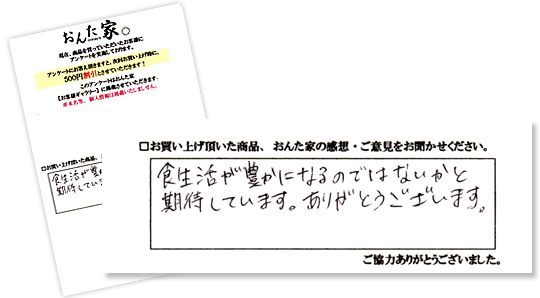 おんた家。
現在、商品を買っていただいたお客様に
アンケートを実施しております。
アンケートにお答え頂きますと、次回お買い上げ時に、
500円割引とさせていただきます！
このアンケートはおんた家
【お客様ギャラリー】に掲載させていただきます。
※お名前、個人情報は掲載いたしません。
□お買い上げ頂いた商品、
食生活が豊か
期待してい
□お買い上げ頂いた商品、おんた家の感想・ご意見をお聞かせください。
食生活が豊かになるのではないかと
期待しています。ありがとうございます。
ご協力ありがとうございました。